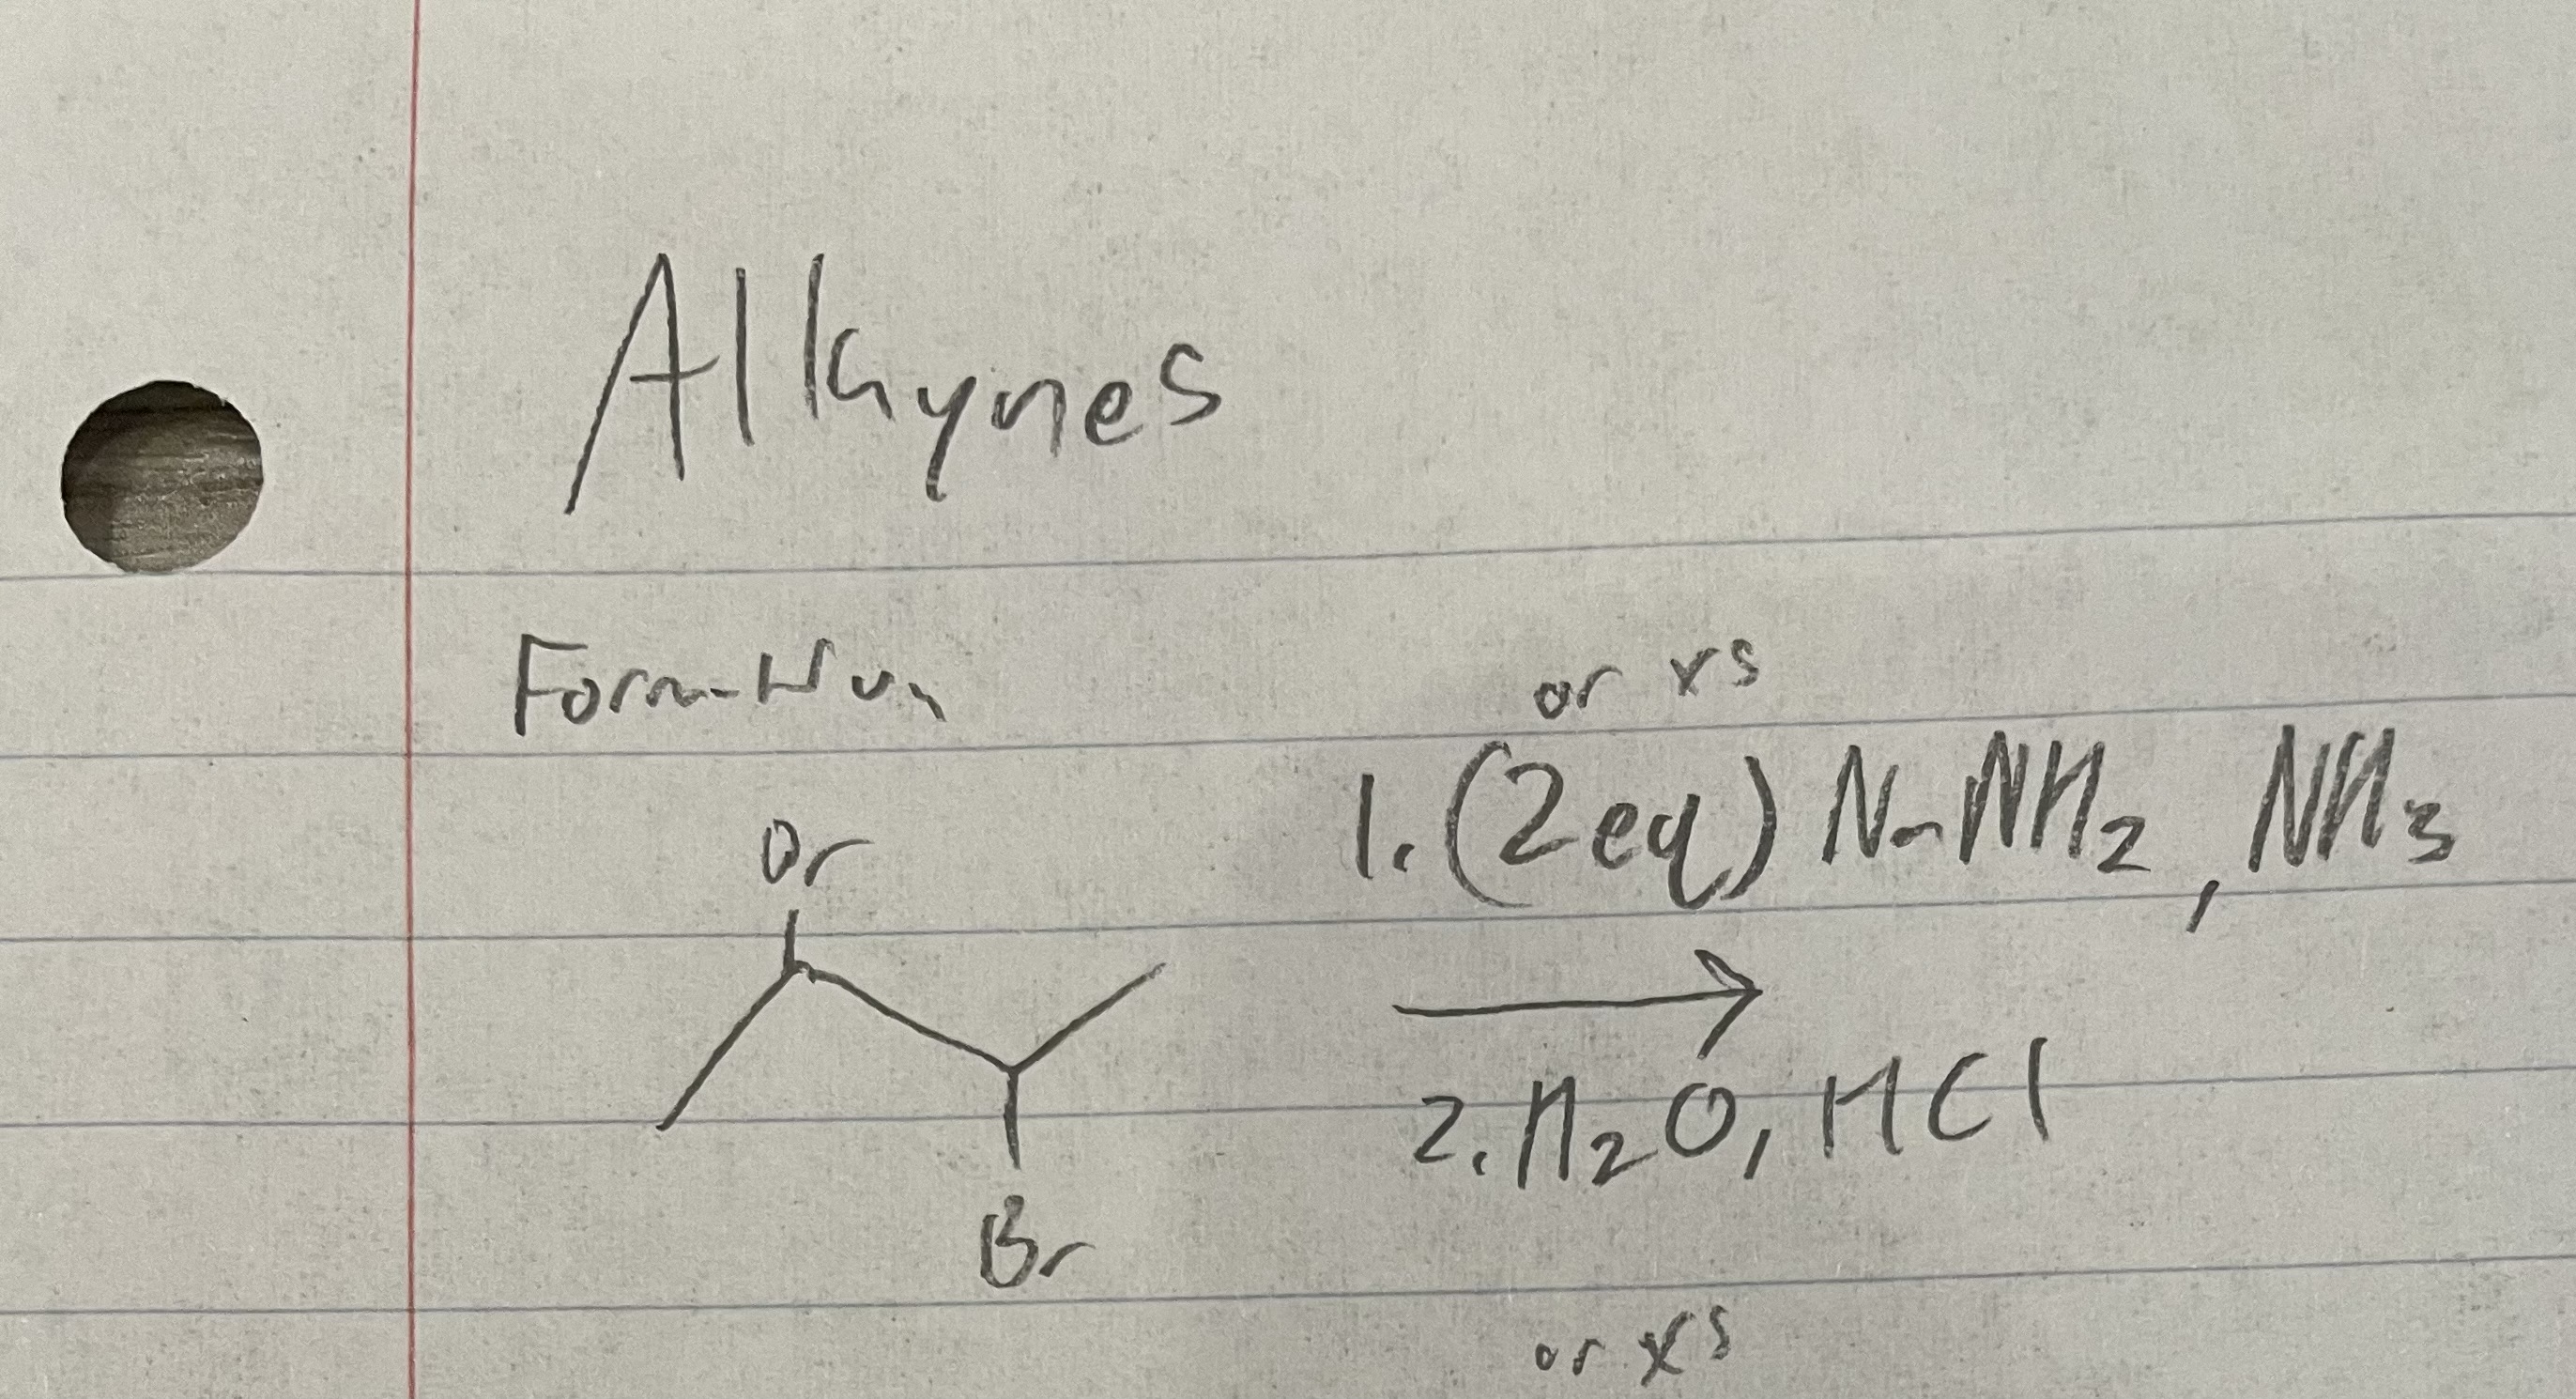 Alkynes
Formation
or xs
1. (2eq) NaNH2, NH3
Br
2. H2O, HCl
Br
or xs